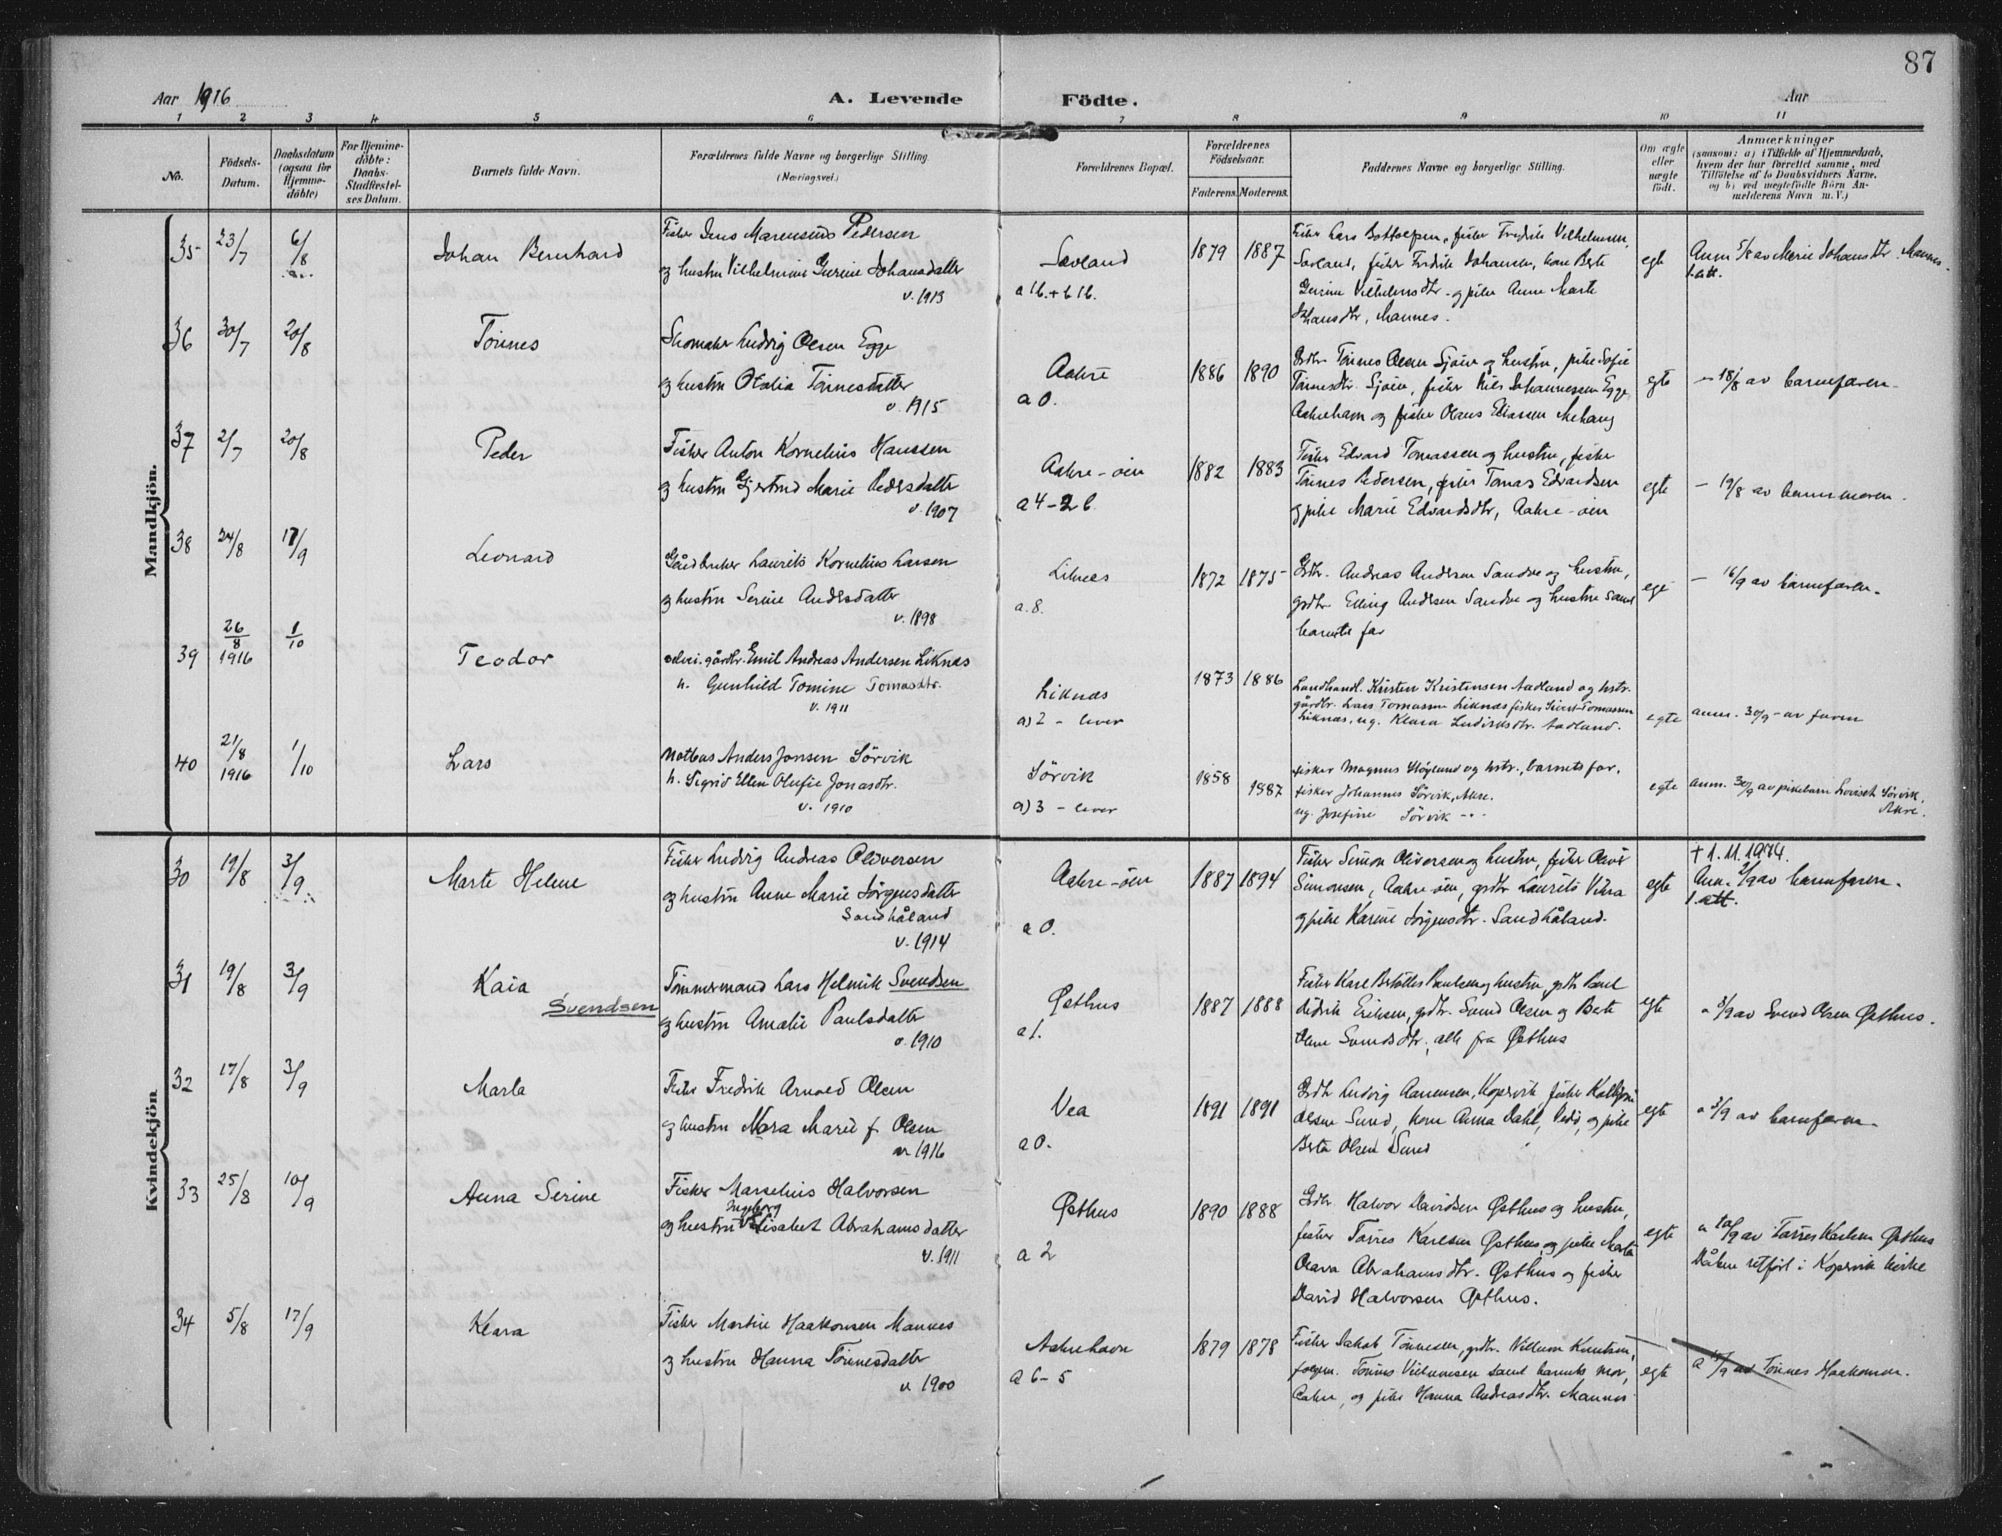 87
Aar 1916
A. Levende
Födte.
Aar
1 2 3 4 5 6 7 8 9 10 11
No.
Födsels-Datum.
Daabsdatum (ogsaa for Hjemme-döbte)
For Hjemme-döbte: Daabs-Stadfæstel-ses Datum.
Barnets fulde Navn.
Forældrenes fulde Navne og borgerlige Stilling.
(Næringsvei.)
Forældrenes Bopæl.
Forældrenes Födselsaar.
Faderens. Moderens.
Faddernes Navne og borgerlige Stilling.
Om ægte eller uægte födt.
Anmærkninger
(saasom: a) i Tilfælde af Hjemmedaab,
hvem der har forrettet samme, med
Tilföielse af to Daabsvidners Navne,
og b) ved uægtefödte Börn An-
melderens Navn m. V.)
Mandkjön.
35 23/7 6/8 Johan Bernhard
Fisker Marensius Pedersen
og hustru Vilhelmine Gurine Johansdatter
v. 1913
Sævland
a 1b. + b 1b.
1879 1887
Fisker Lars Fredrik Vilhelmsen,
Sævland, fisker Fredrik Johansen, kone Berte
Gurine Vilhelmsdtr. og pike Anne Marte
Johansdtr, Mannes.
egte
Anm 5/8 av Marie Johansdtr. Mannes.
1. att.
36 30/7 20/8 Tönnes
Skomaker Ludvig Olsen Egge
og hustru Otalia Tönnesdatter
v. 1915
Aakre
a 0.
1886 1890
Grdbr. Tönnes Olsen og hustru, pike Sofie
Tönnesdtr. fisker Nils Johannessen Egge,
Aakrehavn og fisker Olaus Eliassen
egte
18/8 av barnefaren.
37 2/7 20/8 Peder
Fisker Anton Kornelius Hanssen
og hustru Gjertrud Marie Pedersdatter
v. 1907
Aakre-öen
a 4 - 2 b.
1882 1883
Fisker Edvard Tomassen og hustru, fisker
Tönnes Pedersen, fisker Tomas Edvardsen
og pike Marie Edvardsdtr, Aakre-öen
egte
- 19/8 av barnemoren.
38 24/8 17/9 Leonard
Gårdbruker Laurits Kornelius Larsen
og hustru Serine Andersdatter
v. 1898
Liknes
a. 8.
1872 1875
Grdbr. Andreas Andersen Sandve og hustru,
grdbr. Elling Andersen Sandve og hustru samt
barnets far
egte
- 16/9 av barnefaren.
39 26/8 1916 1/10 Teodor
gårdbr. Emil Andreas Andersen Liknes
h. Gunhild Tomine Tomasdtr.
v. 1911
Liknes
a) 2 - lever
1873 1886
Landhandl. Kristen Kristensen Aadland og hstr.
gårdbr. Lars Tomassen Liknes, fisker Sivert Tomassen
Liknes, ug. Klara Aadland.
egte
anm. 30/9 - av faren
40 21/8 1916 1/10 Lars
Notbas Anders Jonsen Sörvik
h. Sigrid Ellen Olufie Jonasdtr.
v. 1910
Sörvik
a) 3 - lever
1858 1887
fisker Magnus Höglund og hstr., barnets far,
fisker Johannes Sörvik, Akre.
ug. Josefine Sörvik - " -
egte
anm. 30/9 av pikebarn Sörvik,
Akre.
Kvindekjön
30 19/8 3/9 Marte Helene
Fisker Ludvig Andreas Oliversen
og hustru Anne Marie Jörgensdatter
Sandhåland
v. 1914
Aakre-öen
a 0.
1887 1894
Fisker Simon Oliversen og hustru, fisker Oliver
Simonsen, Aakre-öen, grdbr Laurits Vikra
og pike Karine Jörgensdtr. Sandhåland.
egte
+ 1.11.1974.
Anm. 2/9 av barnefaren.
1. att.
31 19/8 3/9 Kaia
Svendsen
Tömmermand Lars Helmik Svendsen
og hustru Amalie Paulsdatter
v. 1910
Østhus
a 1.
1887 1888
Fisker Karl Paulsen og hustru, grdbr Paul
Didrik Eriksen, grdbr. Svend Olsen og Berte
Oline Svendsdtr, alle fra Østhus
egte
" 3/9 av Svend Olsen Østhus.
32 17/8 3/9 Marta
Fisker Fredrik Arnold Olsen
og hustru Nora Marie f. Olsen
v. 1916
Vea
a 0.
1891 1891
Grdbr Ludvig Aanensen, Kopervik, fisker
Olsen Sund, kone Anna Dahl, og pike
Berta Olsen Sund
egte
" 3/9 av barnefaren.
33 25/8 10/9 Anna Serine
Fisker Marselius Halvorsen
Ingeborg
og hustru Elisabet Abrahamsdatter
v. 1911
Østhus
a 2
1890 1888
Grdbr Halvor Davidsen Østhus og hustru,
fisker Torres Karlsen Østhus, og pike Marta
Olava Abrahamsdtr. Østhus og fisker
David Halvorsen Østhus.
egte
" 10/9 av Torres Karlsen Østhus
Dåpen utført i Kopervik kirke
34 5/8 17/9 Klara
Fisker Martin Haakonsen Mannes
og hustru Hanna Tönnesdatter
v. 1900
Aakrehavn
a 6 - 5
1879 1878
Fisker Jakob Tönnesen, grdbr. Villum Knutsen,
Tönnes Villumsen samt barnets mor,
Aakre, og pike Hanna Andreasdtr. Mannes
egte
a 17/9 av Tönnes Haakonsen.